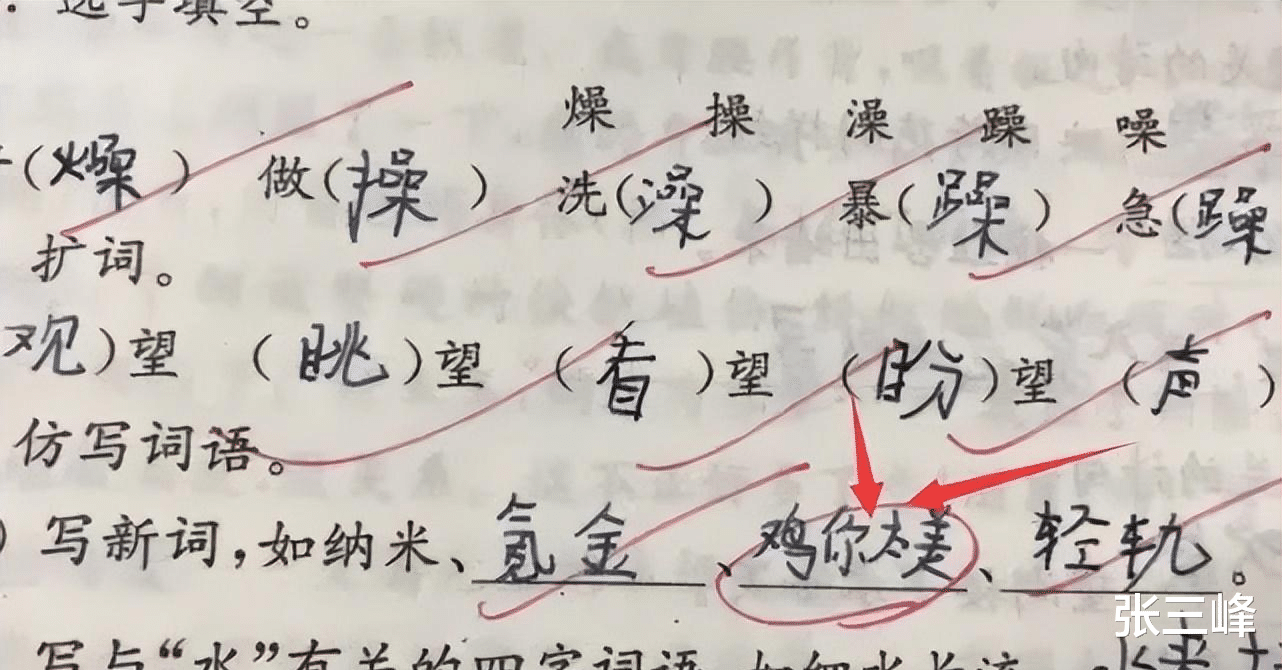 选字填空。
燥 操 澡 躁 噪
(燥) 做(操) 洗(澡) 暴(躁) 急(躁
扩词。
观)望 (眺)望 (看)望 (盼)望 (声)
仿写词语。
)写新词,如纳米、氪金、鸡你太美、轻轨。
写与“水”有关的四字词语,如细水长流
张三峰